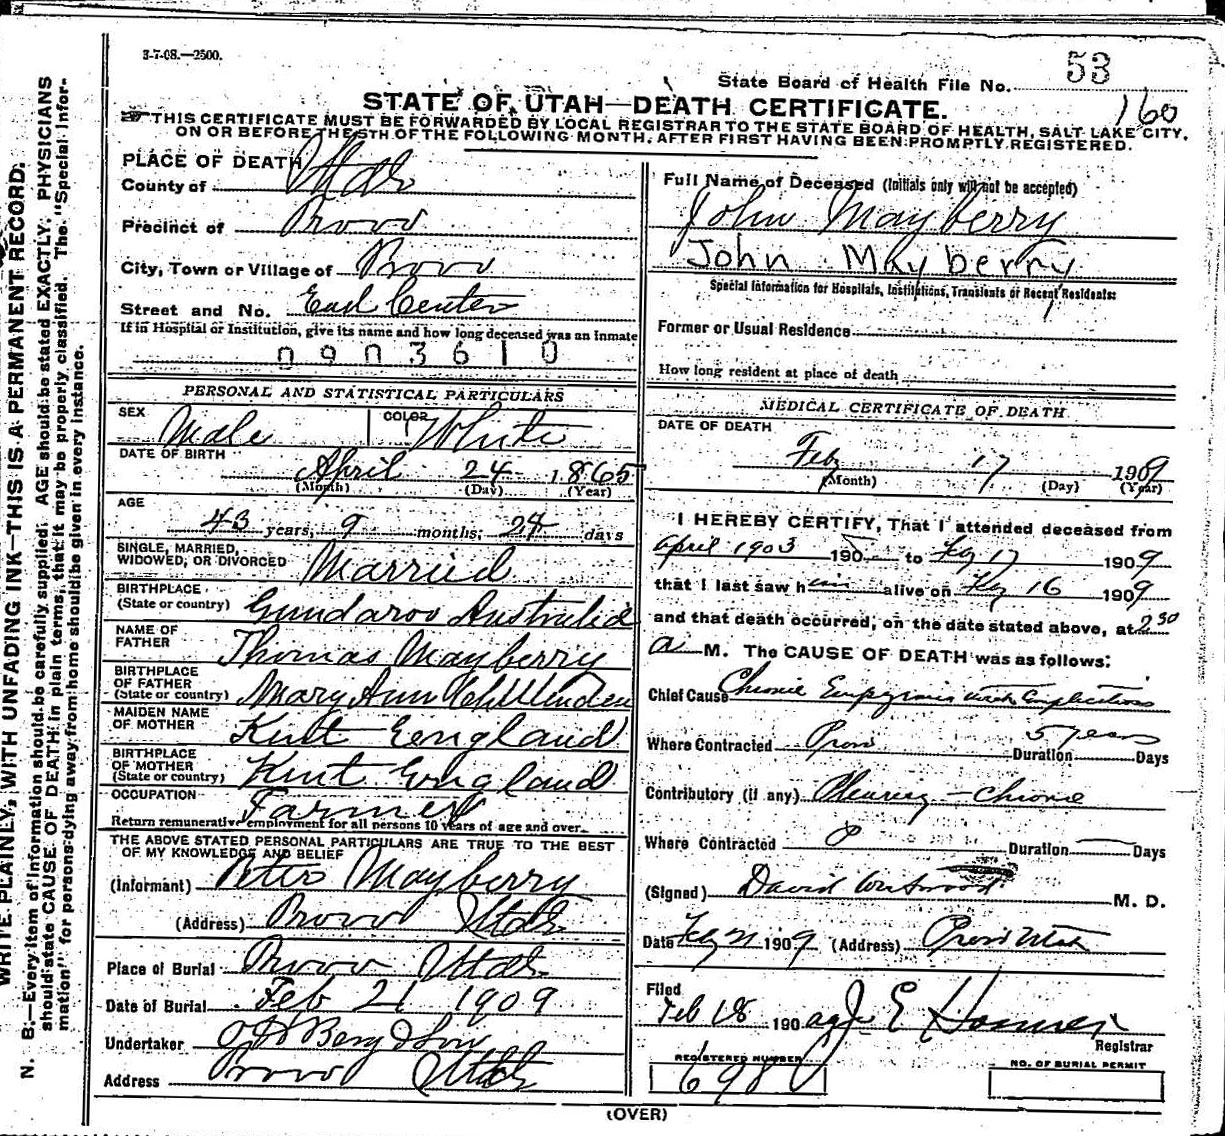 3-7-08.—2500.
State Board of Health File No. 53
160
STATE OF UTAH—DEATH CERTIFICATE.
THIS CERTIFICATE MUST BE FORWARDED BY LOCAL REGISTRAR TO THE STATE BOARD OF HEALTH, SALT LAKE CITY,
ON OR BEFORE THE 5TH OF THE FOLLOWING MONTH, AFTER FIRST HAVING BEEN PROMPTLY REGISTERED.
WRITE PLAINLY, WITH UNFADING INK—THIS IS A PERMANENT RECORD.
N. B.—Every item of information should be carefully supplied. AGE should be stated EXACTLY. PHYSICIANS
should state CAUSE OF DEATH in plain terms, that it may be properly classified. The "Special Infor-
mation" for persons dying away from home should be given in every instance.
PLACE OF DEATH
County of Utah
Precinct of Provo
City, Town or Village of Provo
Street and No. East Center
If in Hospital or Institution, give its name and how long deceased was an inmate
0903610
PERSONAL AND STATISTICAL PARTICULARS
SEX Male COLOR White
DATE OF BIRTH
April 24 1865
(Month) (Day) (Year)
AGE
43 years, 9 months, 24 days
SINGLE, MARRIED,
WIDOWED, OR DIVORCED Married
BIRTHPLACE
(State or country) Gundaroo Australia
NAME OF
FATHER Thomas Mayberry
BIRTHPLACE
OF FATHER
(State or country) Mary Ann
MAIDEN NAME
OF MOTHER Kent England
BIRTHPLACE
OF MOTHER
(State or country) Kent England
OCCUPATION Farmer
Return remunerative employment for all persons 10 years of age and over.
THE ABOVE STATED PERSONAL PARTICULARS ARE TRUE TO THE BEST
OF MY KNOWLEDGE AND BELIEF
(Informant) Mayberry
(Address) Provo Utah
Place of Burial Provo Utah
Date of Burial Feb 21 1909
Undertaker Berg & Son
Address Provo Utah
Full Name of Deceased (Initials only will not be accepted)
John Mayberry
John Mayberry
Special Information for Hospitals, Institutions, Transients or Recent Residents:
Former or Usual Residence
How long resident at place of death
MEDICAL CERTIFICATE OF DEATH
DATE OF DEATH
Feb 17 1909
(Month) (Day) (Year)
I HEREBY CERTIFY, That I attended deceased from
April 1903 190 to Feb 17 1909
that I last saw him alive on Feb 16 1909
and that death occurred, on the date stated above, at 2 30
a M. The CAUSE OF DEATH was as follows:
Chief Cause Chronic Empyema with Complications
Where Contracted Provo Duration 5 years Days
Contributory (if any) Pleurisy - Chronic
Where Contracted Duration Days
(Signed) David Westwood M. D.
Date Feb 21 1909 (Address) Provo Utah
Filed
Feb 18 1909 J E Registrar
REGISTERED NUMBER
698
NO. OF BURIAL PERMIT
(OVER)